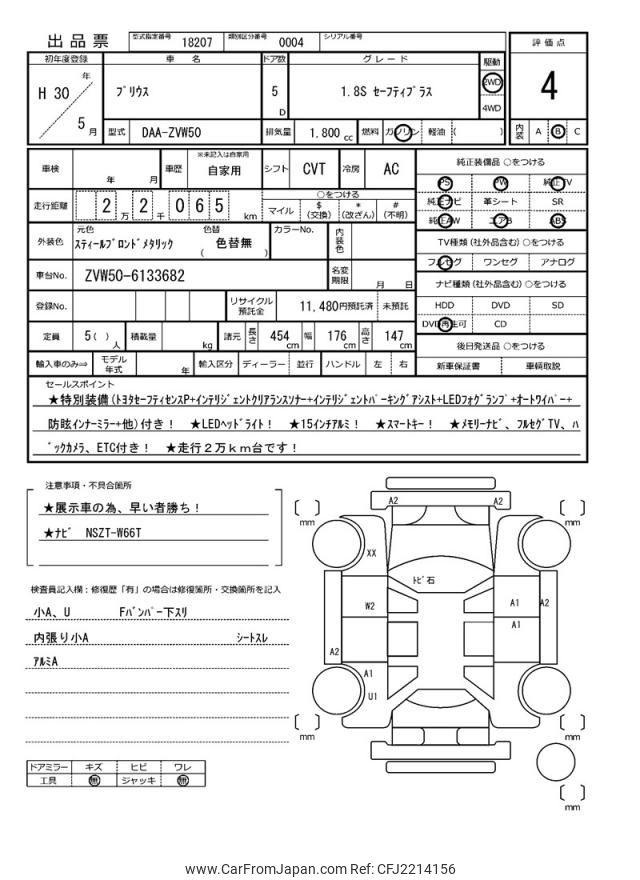 出品票
型式指定番号 18207 類別区分番号 0004 シリアル番号
初年度登録 車名 ドア数 グレード 駆動 評価点
H 30 年 5 月
プリウス 5 D 1.8S セーフティプラス 2WD 4WD
4
型式 DAA-ZVW50 排気量 1,800 cc 燃料 ガソリン 軽油 ( ) 内装 A B C
車検 年 月 車歴 ※未記入は自家用 自家用 シフト CVT 冷房 AC
純正装備品 ○をつける
PS PW 純正TV
走行距離 2 万 2 千 0 6 5 km ○をつける
マイル $(交換) *(改ざん) #(不明)
純正ナビ 革シート SR
純正AW エアB ABS
外装色 元色 スティールブロンドメタリック 色替 ( 色替無 ) カラーNo. 内装色
TV種類(社外品含む)○をつける
フルセグ ワンセグ アナログ
車台No. ZVW50-6133682 名変期限 月 日
ナビ種類(社外品含む)○をつける
登録No. リサイクル預託金 11,480円預託済 未預託
HDD DVD SD
DVD再生可 CD
定員 5( )人 積載量 kg 諸元 長さ 454 cm 幅 176 cm 高さ 147 cm
後日発送品 ○をつける
輸入車のみ⇒ モデル年式 年 輸入区分 ディーラー 並行 ハンドル 左 右
新車保証書 車輌取説
セールスポイント
★特別装備(トヨタセーフティセンスP+インテリジェントクリアランスソナー+インテリジェントパーキングアシスト+LEDフォグランプ+オートワイパー+
防眩インナーミラー+他)付き! ★LEDヘッドライト! ★15インチアルミ! ★スマートキー! ★メモリーナビ、フルセグTV、バ
ックカメラ、ETC付き! ★走行2万km台です!
注意事項・不具合箇所
★展示車の為、早い者勝ち!
★ナビ NSZT-W66T
検査員記入欄:修復歴「有」の場合は修復箇所・交換箇所を記入
小A、U Fバンパー下スリ
内張り小A シートスレ
アルミA
A2 A2
mm mm
XX
トビ石
W2 A1 A2
A1
A2
A1
U1
mm mm
mm
ドアミラー キズ ヒビ ワレ
工具 無 ジャッキ 無
www.CarFromJapan.com Ref: CFJ2214156